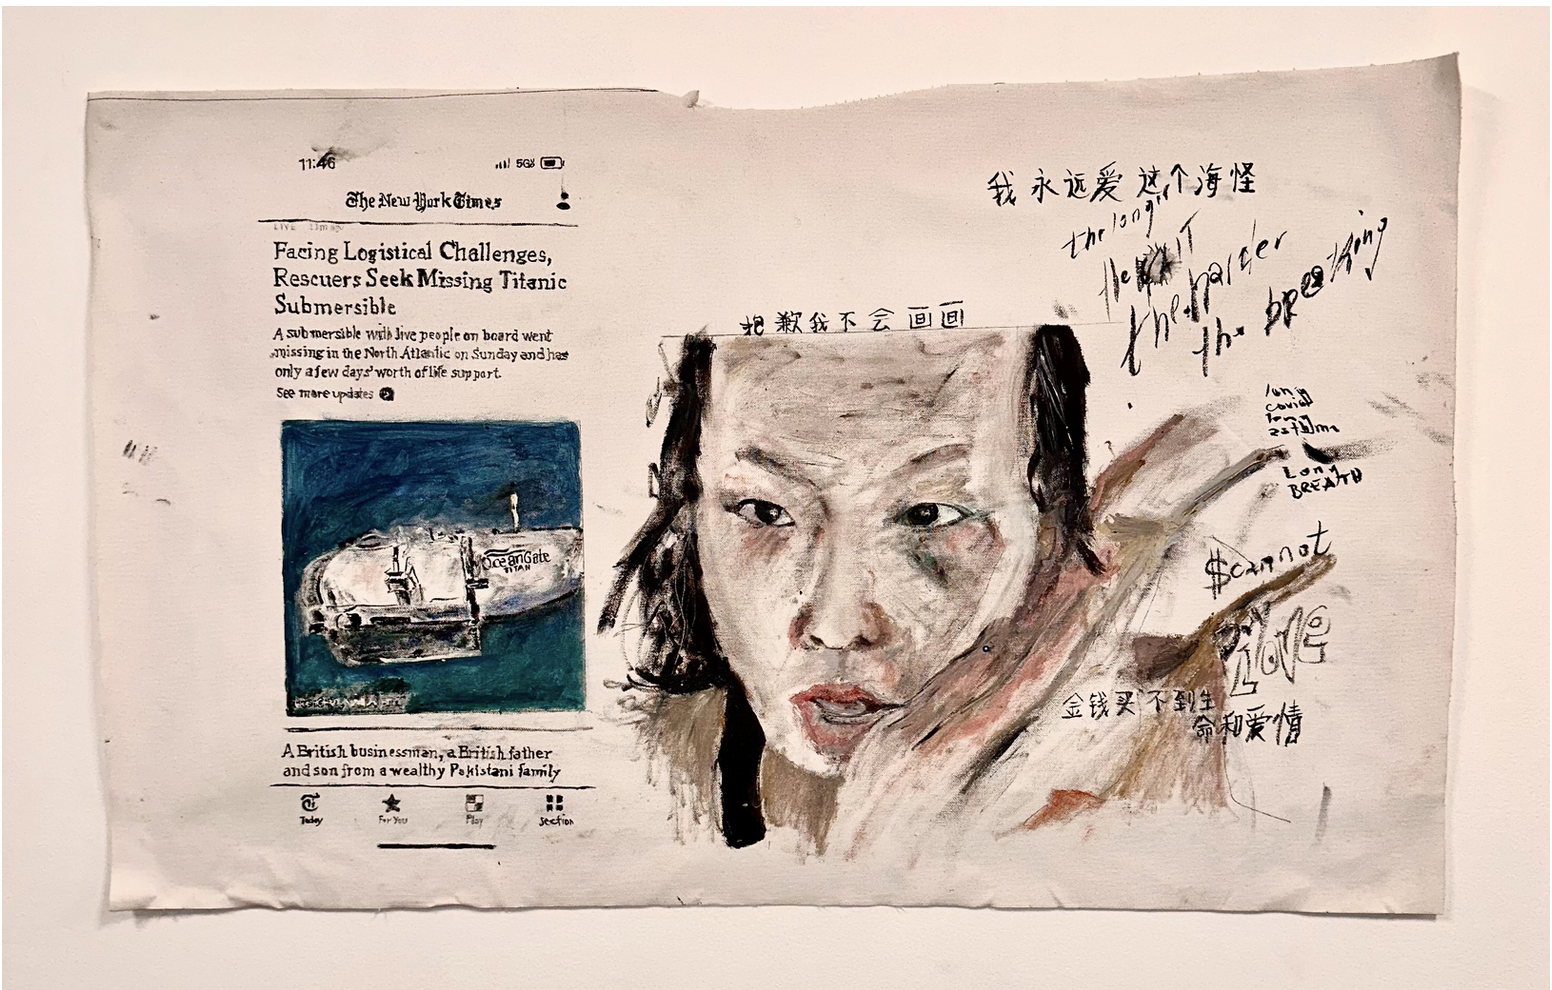 11:46
5G
The New York Times
LIVE
Facing Logistical Challenges,
Rescuers Seek Missing Titanic
Submersible
A submersible with five people on board went
missing in the North Atlantic on Sunday and has
only a few days' worth of life support.
See more updates
OceanGate
TITAN
A British businessman, a British father
and son from a wealthy Pakistani family
Today
For You
Play
Section
抱歉我不会画画
我永远爱这个海怪
the longer
the
the harder
the breathing
long
covid
long
asthma
Long
BREATH
$cannot
BUY
LOVE
金钱买不到生
命和爱情